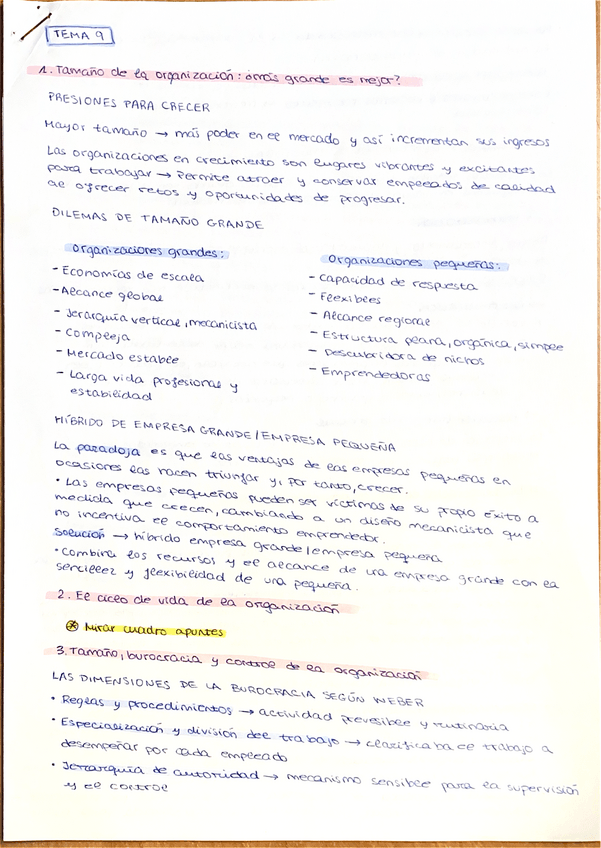 TEMA 9
1. Tamaño de la organización: ¿más grande es mejor?
PRESIONES PARA CRECER
Mayor tamaño → más poder en el mercado y así incrementan sus ingresos
Las organizaciones en crecimiento son lugares vibrantes y excitantes
para trabajar → Permite atraer y conservar empleados de calidad
al ofrecer retos y oportunidades de progresar.
DILEMAS DE TAMAÑO GRANDE
Organizaciones grandes:
- Economías de escala
- Alcance global
- Jerarquía vertical, mecanicista
- Compleja
- Mercado estable
- Larga vida profesional y
estabilidad
Organizaciones pequeñas:
- Capacidad de respuesta
- Flexibles
- Alcance regional
- Estructura plana, orgánica, simple
- Descubridora de nichos
- Emprendedoras
HÍBRIDO DE EMPRESA GRANDE/EMPRESA PEQUEÑA
La paradoja es que las ventajas de las empresas pequeñas en
ocasiones las hacen triunfar y, por tanto, crecer.
• Las empresas pequeñas pueden ser víctimas de su propio éxito a
medida que crecen, cambiando a un diseño mecanicista que
no incentiva el comportamiento emprendedor.
Solución → híbrido empresa grande/empresa pequeña
• Combina los recursos y el alcance de una empresa grande con la
sencillez y flexibilidad de una pequeña.
2. El ciclo de vida de la organización
⊛ Mirar cuadro apuntes
3. Tamaño, burocracia y control de la organización
LAS DIMENSIONES DE LA BUROCRACIA SEGÚN WEBER
• Reglas y procedimientos → actividad previsible y rutinaria
• Especialización y división del trabajo → clarificaba el trabajo a
desempeñar por cada empleado
• Jerarquía de autoridad → mecanismo sensible para la supervisión
y el control